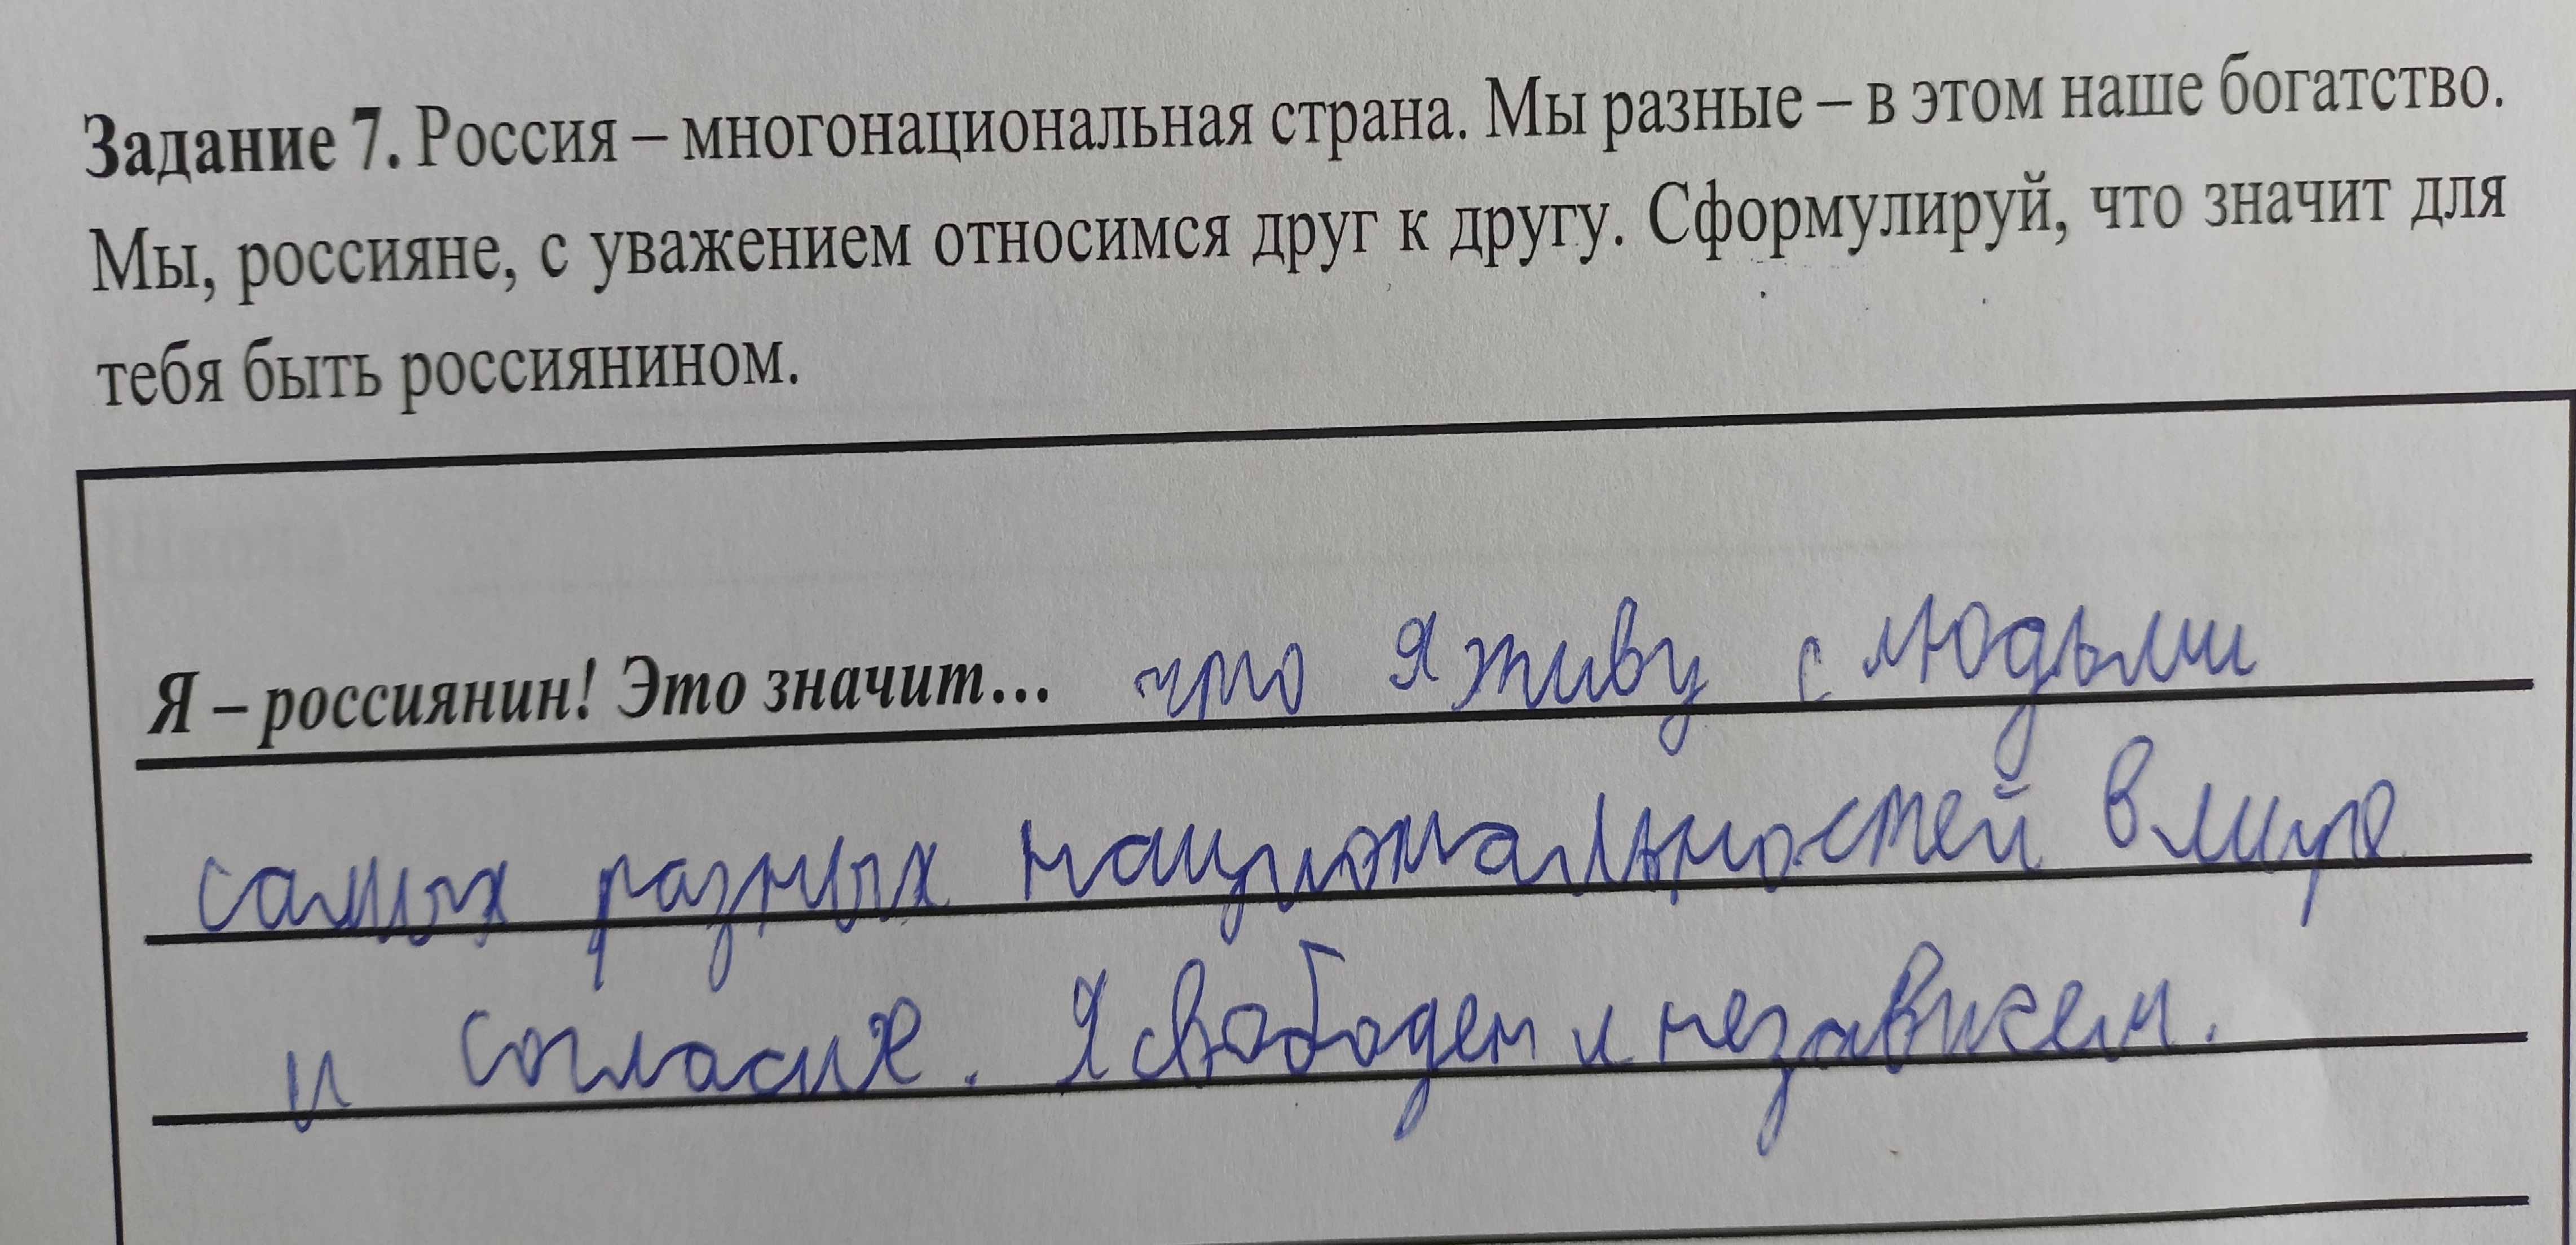 Задание 7. Россия – многонациональная страна. Мы разные – в этом наше богатство.
Мы, россияне, с уважением относимся друг к другу. Сформулируй, что значит для
тебя быть россиянином.
Я – россиянин! Это значит... что я живу с людьми
самых разных национальностей в мире
и согласие. Я свободен и независем.